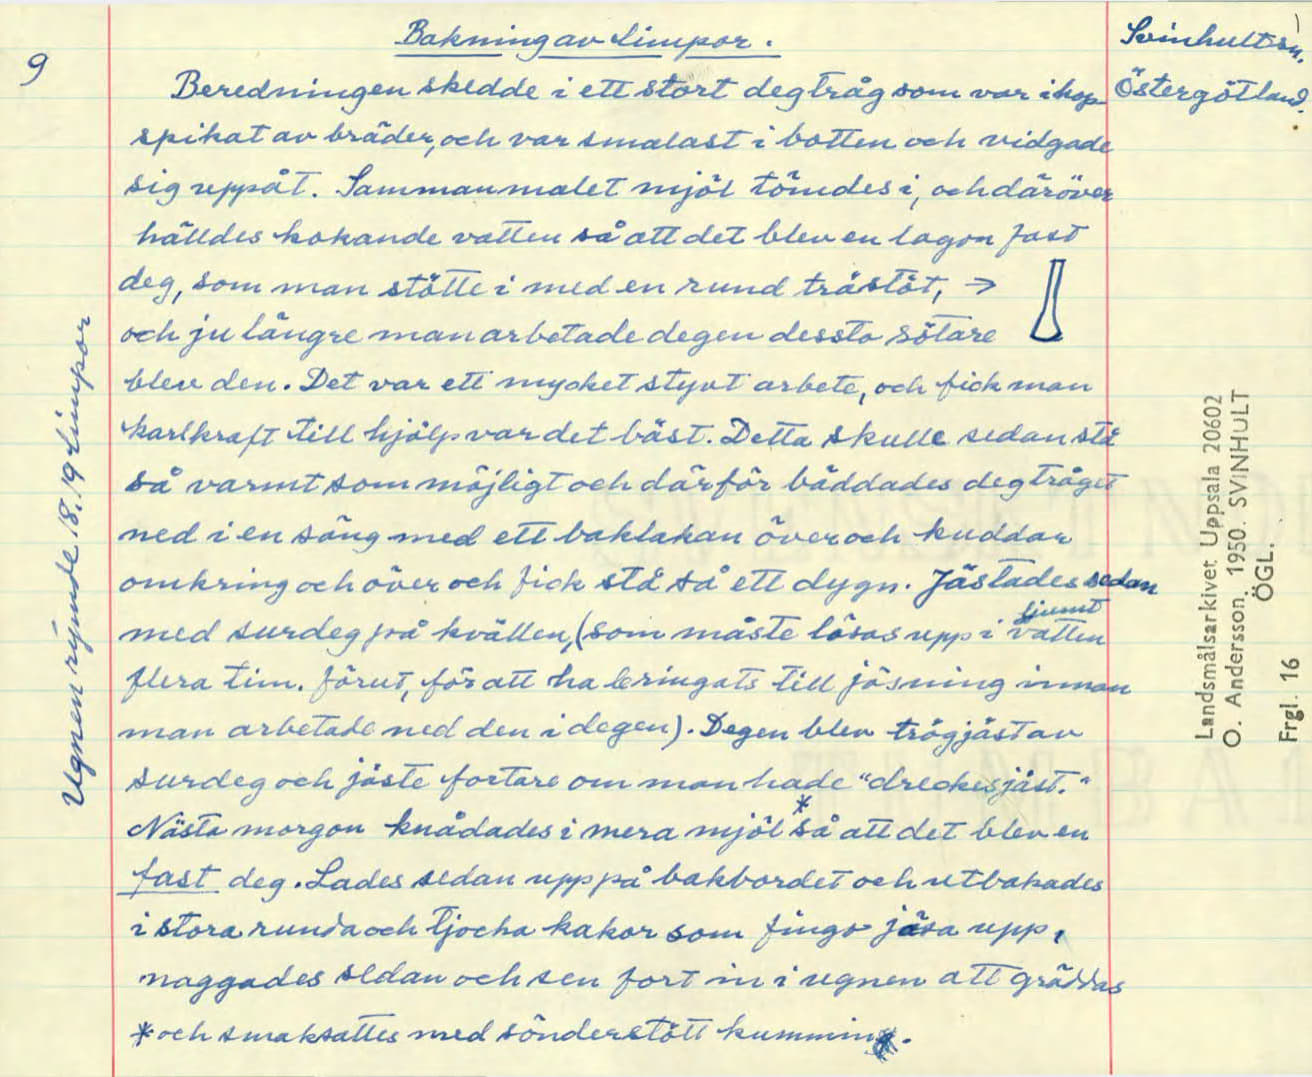 Bakning av limpor.
Svinhult sn.
Östergötland.
9
Beredningen skedde i ett stort degtråg som var ihop-
spikat av bräder, och var smalast i botten och vidgade
sig uppåt. Sammanmalet mjöl tömdes i, och däröver
hälldes kokande vatten så att det blev en lagom fast
deg, som man stötte i med en rund trästöt, →
och ju längre man arbetade degen dessto sötare
blev den. Det var ett mycket styvt arbete, och fick man
karlkraft till hjälp var det bäst. Detta skulle sedan stå
så varmt som möjligt och därför bäddades degtråget
ned i en säng med ett baklakan över och kuddar
omkring och över och fick stå så ett dygn. Jästades sedan
med surdeg på kvällen, (som måste lösas upp i ljumt vatten
flera tim. förut, för att ha bringats till jäsning innan
man arbetade ned den i degen). Degen blev trögjäst av
surdeg och jäste fortare om man hade "dreckesjäst."
Nästa morgon knådades i mera mjöl * så att det blev en
fast deg. Lades sedan upp på bakbordet och utbakades
i stora runda och tjocka kakor som fingo jäsa upp,
naggades sedan och sen fort in i ugnen att gräddas
* och smaksattes med sönderstött kummin.
Ugnen rymde 18. 19 limpor
Landsmålsarkivet Uppsala 20602
O. Andersson. 1950. SVINHULT
ÖGL.
Frgl. 16